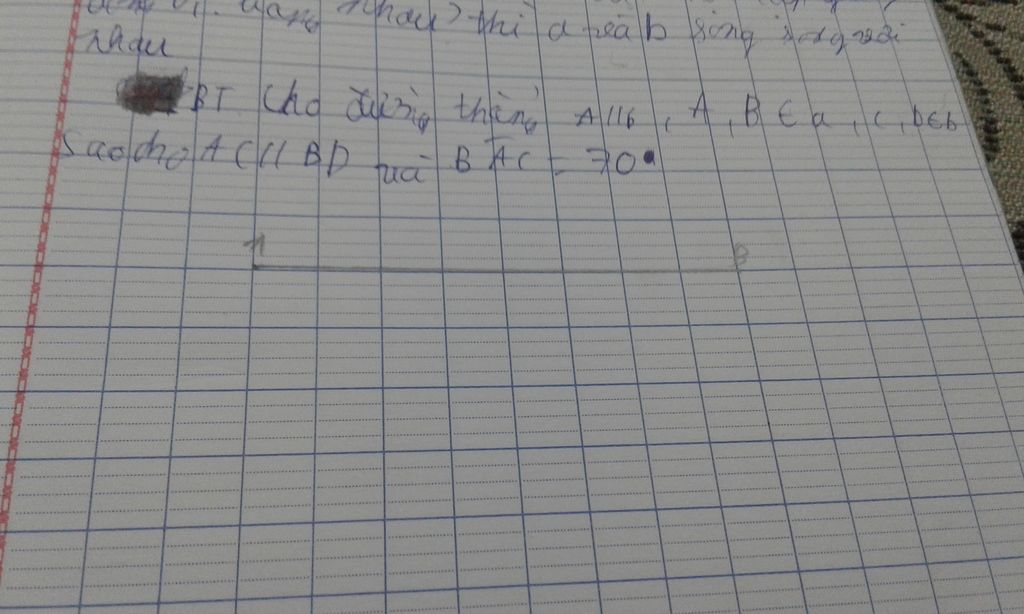 nhau) thì a và b song song với
nhau
BT Cho đường thẳng A//b, A, B ∈ a, C, D ∈ b
Sao cho AC // BD và BAC = 70°
A B